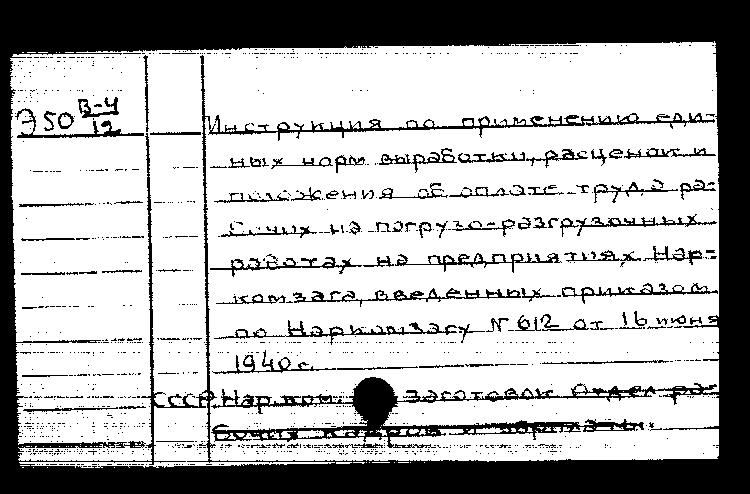 Э50 В-4/12
Инструкция по применению еди-
ных норм выработки, расценок и
положения об оплате труда ра-
бочих на погрузо-разгрузочных
работах на предприятиях Нар-
комзага, введенных приказом
по Наркомзагу № 612 от 16 июня
1940 г.
СССР. Нар. ком. заготовок Отдел ра-
бочих кадров и зарплаты.